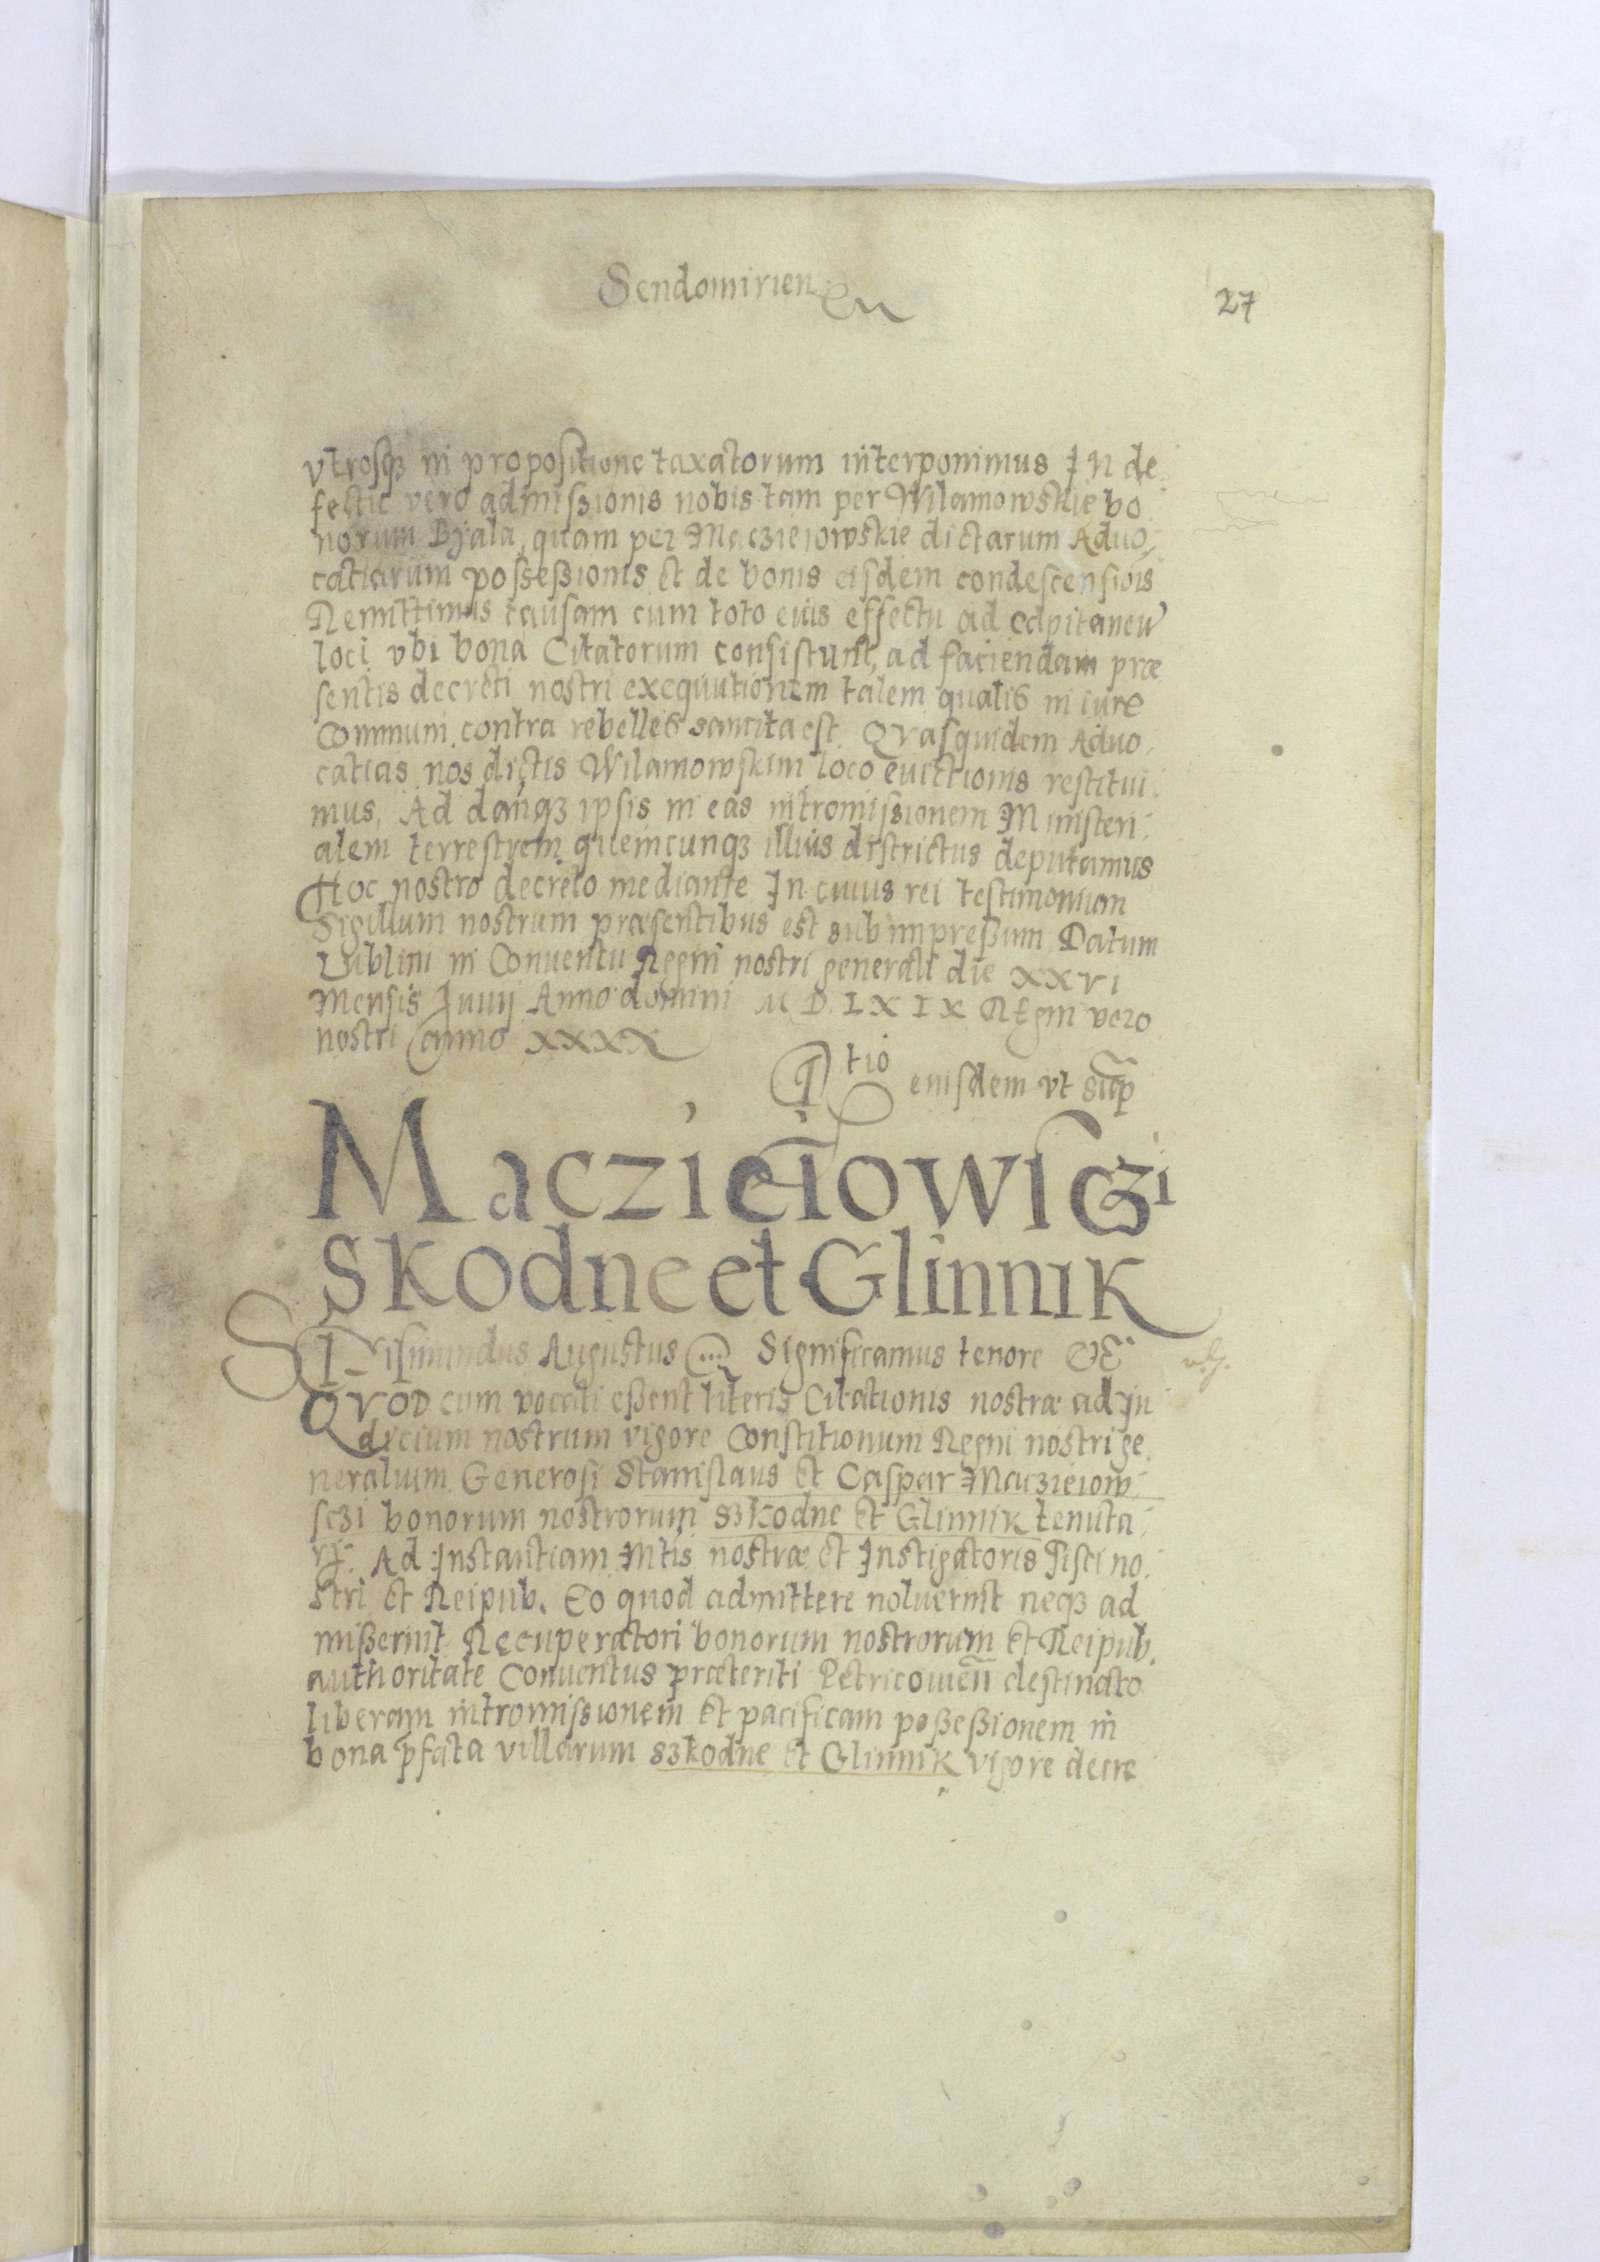 Sendomirien
27
vtrosqȝ in propositione taxatorum interponimus In de
fectu vero admissionis nobis tam per Wilamowskie bo
norum Byala, quam per Maczieiowskie dictarum Aduo
catiarum possessionis et de bonis eisdem condescensionis
Remittimus causam cum toto eius effectu ad capitaneu
loci vbi bona Citatorum consistunt, ad faciendam præ
sentis decreti nostri exequutionem talem qualis in iure
Communi contra rebelles sancita est. Qvasquidem Aduo
catias nos dictis Wilamowskim loco euictionis restitui
mus. Ad danqȝ ipsis in eas intromissionem Ministeri
alem terrestrem quemcunqȝ illius districtus deputamus
Hoc nostro decreto mediante In cuius rei testimonium
Sigillum nostrum præsentibus est subimpressum Datum
Lublini in Conuentu Regni nostri generali die XXVI
Mensis Iunij Anno domini M D LXIX Regni vero
nostri anno XXXX
tio
eiusdem vt sup
Maczieiowsczi
Skodne et Glinnik
Sigismundus Augustus Significamus tenore
QVOD cum vocati essent literis Citationis nostræ ad Iu
dicium nostrum vigore Constitionum Regni nostri ge
neralium Generosi Stanislaus et Caspar Maczieiow
sczi bonorum nostrorum Szkodne et Glinnik tenuta
rij. Ad Instantiam Mtis nostræ et Instigatoris Fisci no
stri et Reipub. Eo quod admittere noluerint neqȝ ad
misserint Recuperatori bonorum nostrorum et Reipub.
authoritate Conuentus præteriti Petricouien destinato
liberam intromissionem et pacificam possessionem in
bona pfata villarum Szkodne et Glinnik vigore decre